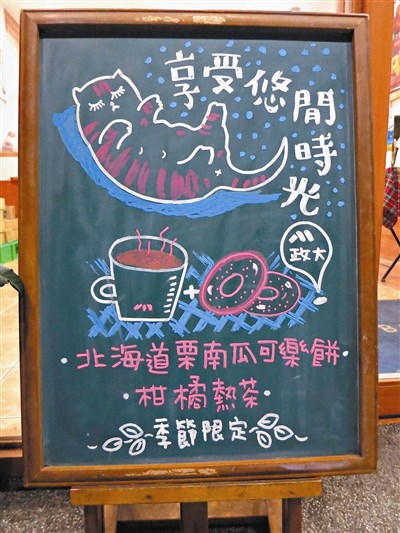 享受悠閒時光
政大
+
·北海道栗南瓜可樂餅·
·柑橘熱茶·
季節限定